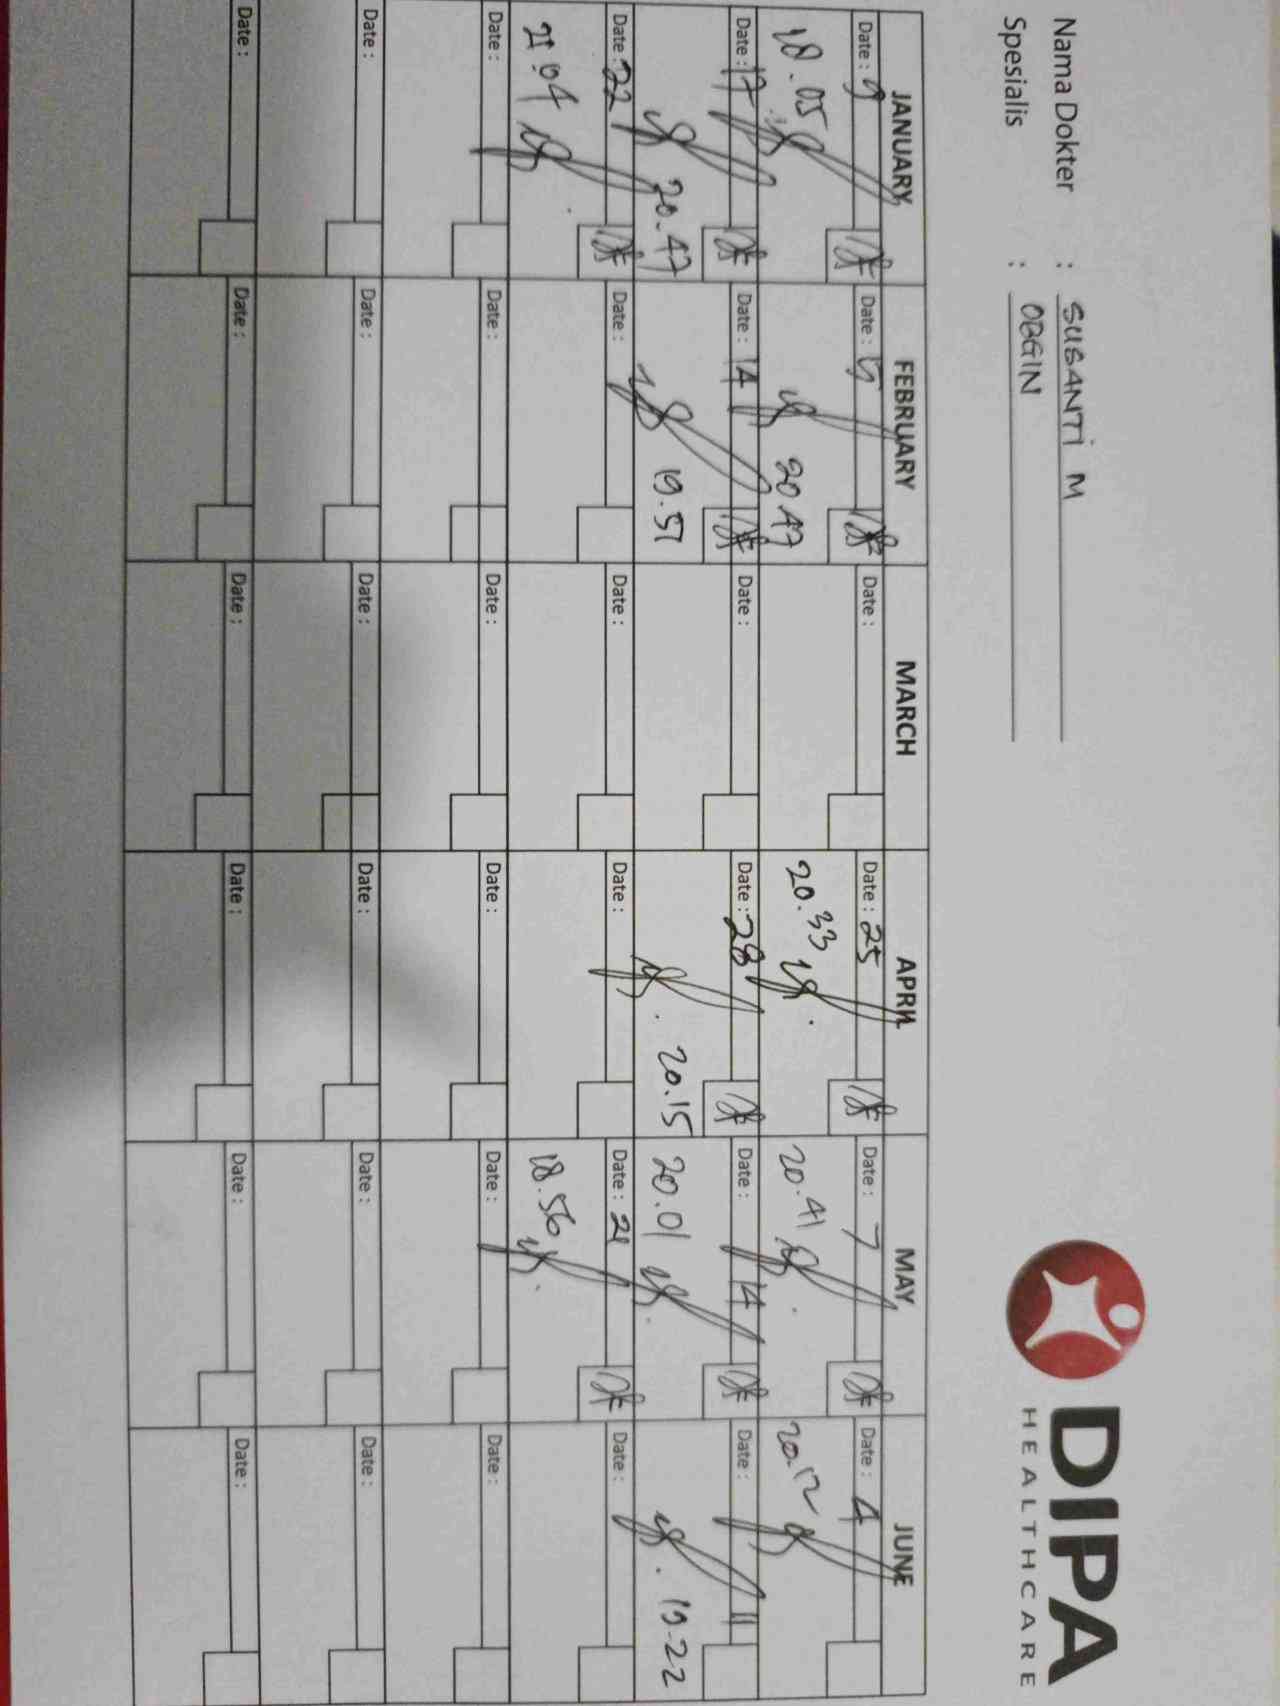 Nama Dokter : SUSANTI M
Spesialis : OBGIN
DIPA
HEALTHCARE
JANUARY FEBRUARY MARCH APRIL MAY JUNE
Date : 9 Date : 5 Date : Date : 25 Date : 7 Date : 4
18.05 20 47 20.33 20.41 20.12
Date : 17 Date : 14 Date : Date : 28 Date : 14 Date : 11
20.47 19.57 20.15 20.01 19-22
Date : 22 Date : Date : Date : Date : 21 Date :
21.04 18.56
Date : Date : Date : Date : Date : Date :
Date : Date : Date : Date : Date : Date :
Date : Date : Date : Date : Date : Date :